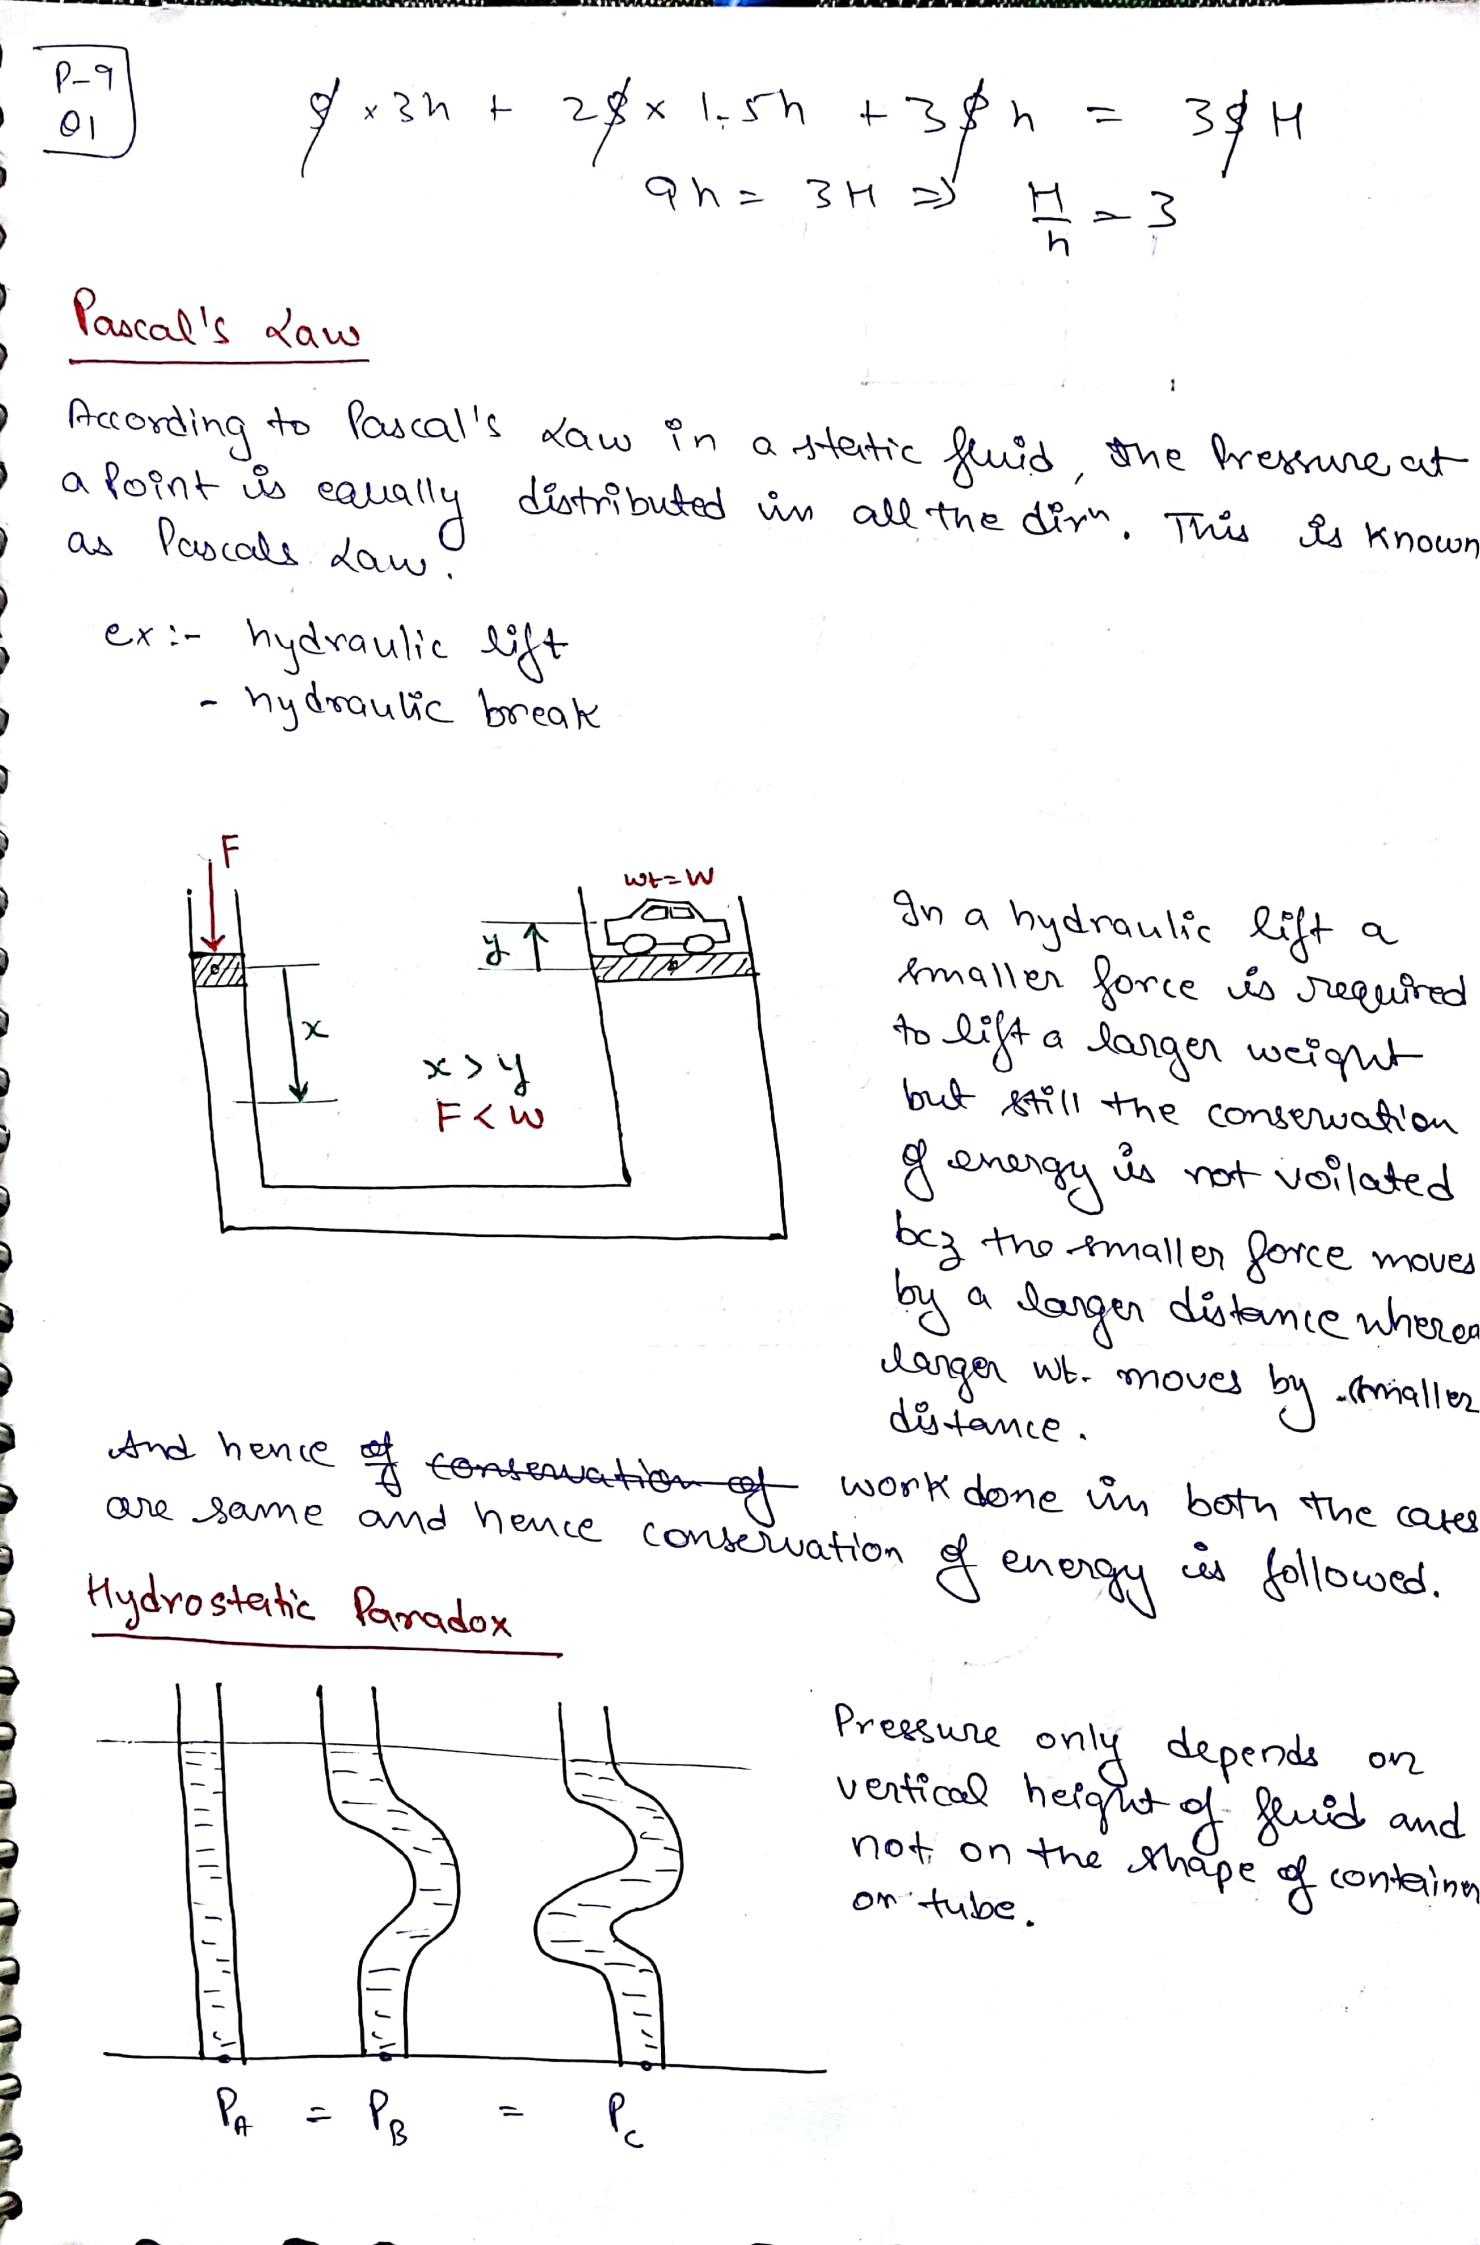 P-9
01
ρ × 3h + 2ρ × 1.5h + 3ρh = 3ρH
9h = 3H ⇒ H/h = 3
Pascal's Law
According to Pascal's Law in a static fluid, the Pressure at
a Point is equally distributed in all the dirⁿ. This is known
as Pascals Law.
ex :- hydraulic lift
- hydraulic break
F
wt = W
y
x
x > y
F < W
In a hydraulic lift a
smaller force is required
to lift a larger weight
but still the conservation
of energy is not voilated
bcz the smaller force moves
by a larger distance wherea
larger wt. moves by smaller
distance.
And hence of conservation of work done in both the cases
are same and hence conservation of energy is followed.
Hydrostatic Paradox
Pressure only depends on
vertical height of fluid and
not on the shape of container
or tube.
P_A = P_B = P_C